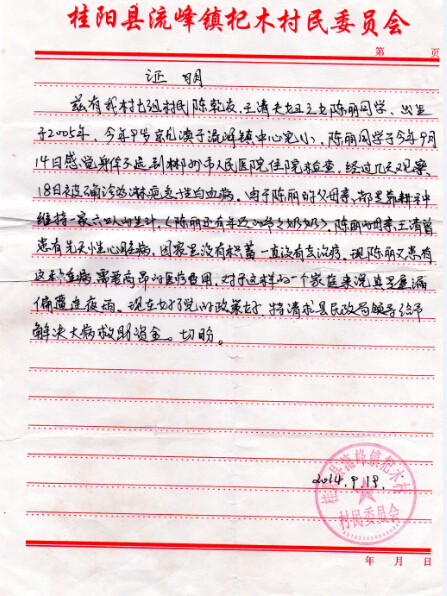 桂阳县流峰镇杞木村民委员会
第 页
证 明
兹有我村七组村民陈乾友、王清夫妇之女陈丽同学,出生
于2005年,今年9岁,就读于流峰镇中心完小,陈丽同学于今年9月
14日感觉身体不适到郴州市人民医院住院检查,经过几天观察
18日被确诊为淋巴急性白血病。由于陈丽的父母亲,都是靠耕种
维持一家六口人的生计,(陈丽还有年迈的爷爷奶奶)。陈丽的母亲王清曾
患有先天性心脏病,因家里没有积蓄一直没有去治疗。现陈丽又患有
这种重病,需要高昂的医疗费用,对于这样的一个家庭来说真是屋漏
偏遭连夜雨。现在好党的政策好,特请求县民政局领导给予
解决大病救助资金。切盼。
2014.9.19.
桂阳县流峰镇杞木村
村民委员会
年 月 日